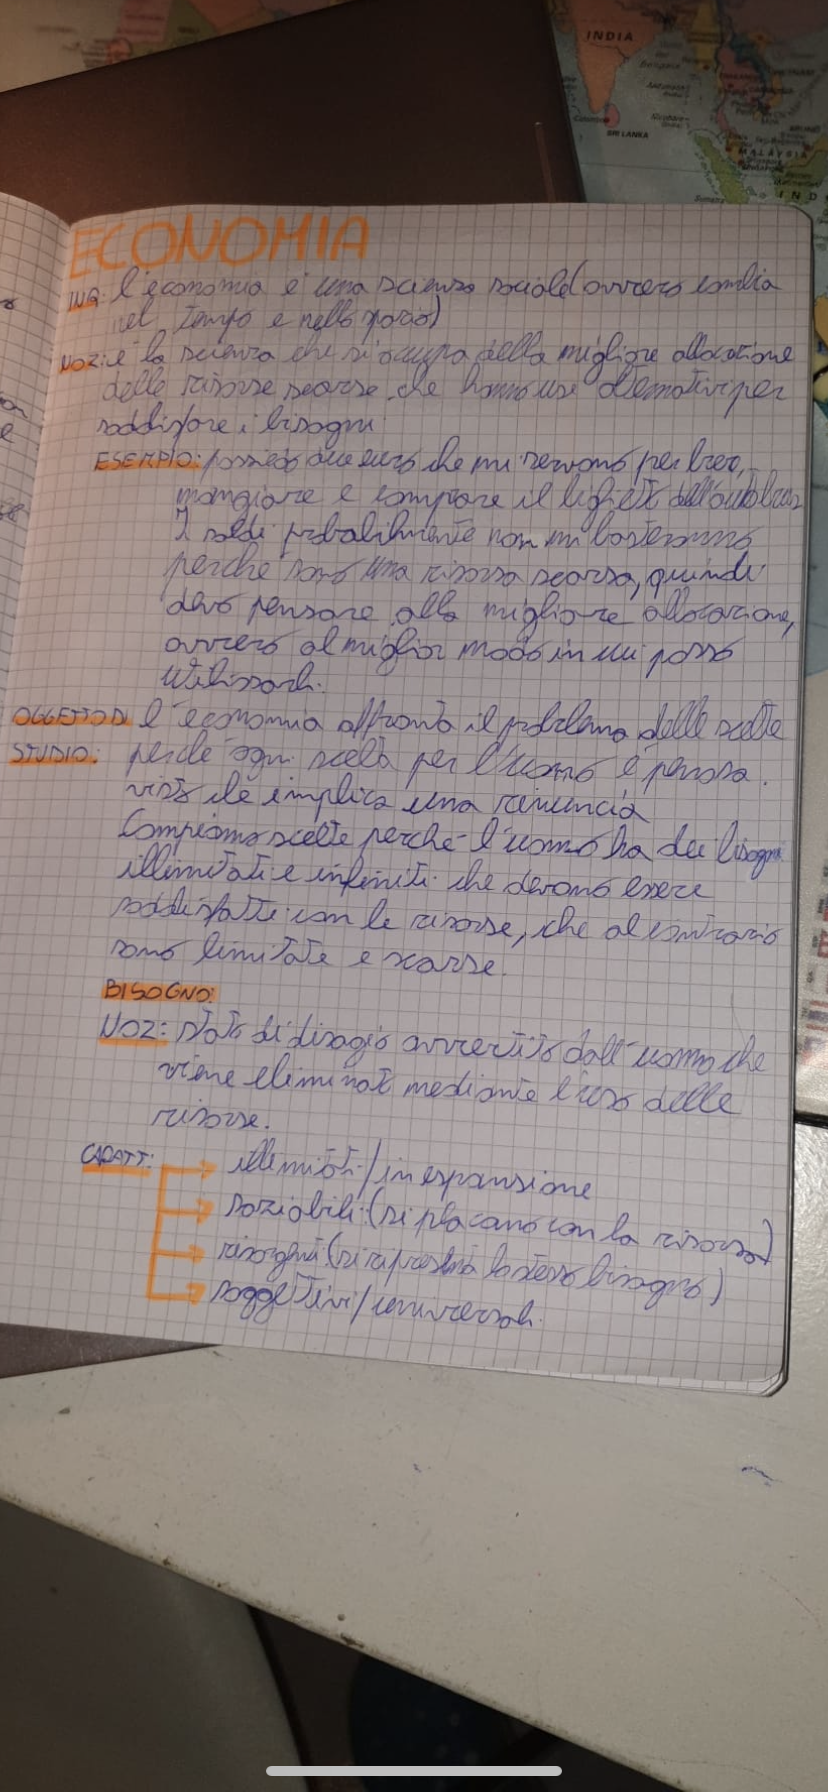 INDIA
SRI LANKA
MALAYSIA
SINGAPORE
IND
ECONOMIA
INQ: l'economia è una scienza sociale (ovvero cambia
nel tempo e nello spazio)
NOZ: è la scienza che si occupa della migliore allocazione
delle risorse scarse che hanno usi alternativi per
soddisfare i bisogni
ESEMPIO: possiedo due euro che mi servono per bere,
mangiare e comprare il biglietto dell'autobus
I soldi probabilmente non mi basteranno
perche sono una risorsa scarsa, quindi
devo pensare alla migliore allocazione,
ovvero al miglior modo in cui posso
utilizzarli.
OGGETTO DI l'economia affronta il problema delle scelte
STUDIO: perché ogni scelta per l'uomo è penosa
visto che implica una rinuncia
Compiamo scelte perché l'uomo ha dei bisogni
illimitati e infiniti che devono essere
soddisfatti con le risorse, che al contrario
sono limitate e scarse.
BISOGNO:
NOZ: stato di disagio avvertito dall'uomo che
viene eliminato mediante l'uso delle
risorse.
CARATT: illimitati/in espansione
saziabili (si placano con la risorsa)
risorgenti (si ripresenta lo stesso bisogno)
soggettivi/universali